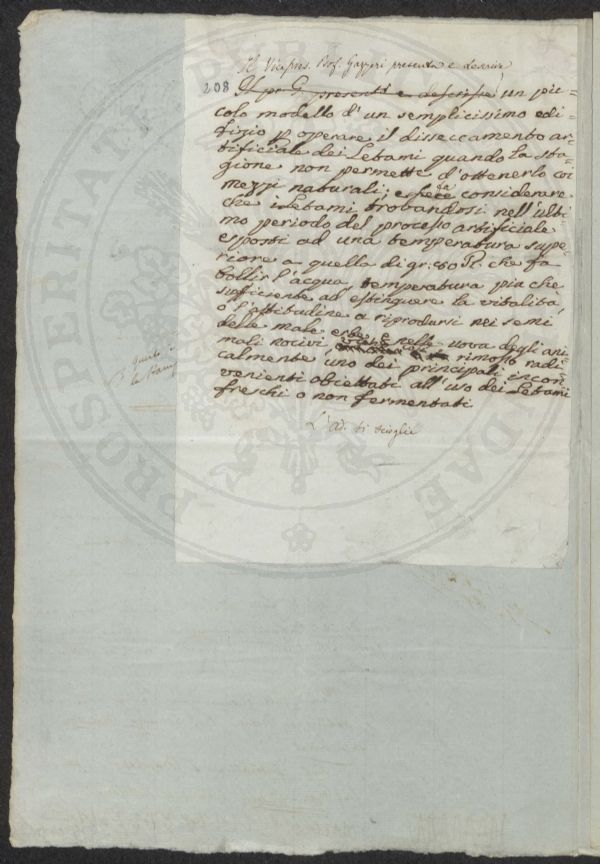 Il Vicepres. Prof. Gazzeri presenta e descrive
208 Il pr G. presentò e descrisse un pic=
colo modello d'un semplicissimo edi=
fizio p operare il disseccamento ar=
tificiale dei Letami quando la sta=
gione non permette d'ottenerlo coi
mezzi naturali; e fece considerare
che i Letami trovandosi nell'ulti=
mo periodo del processo artificiale
esposti ad una temperatura supe=
riore a quella di gr: 80 R. che fa
bollir l'acqua, temperatura più che
sufficiente ad estinguere la vitalità,
o l'attitudine a riprodursi nei semi
delle male erbe e nelle uova degli ani
mali nocivi rimosso radi=
calmente uno dei principali incon=
venienti obiettati all'uso dei Letami
freschi o non fermentati
L'ad. si scioglie
questo
la stamp
PROSPERITATI
DAE